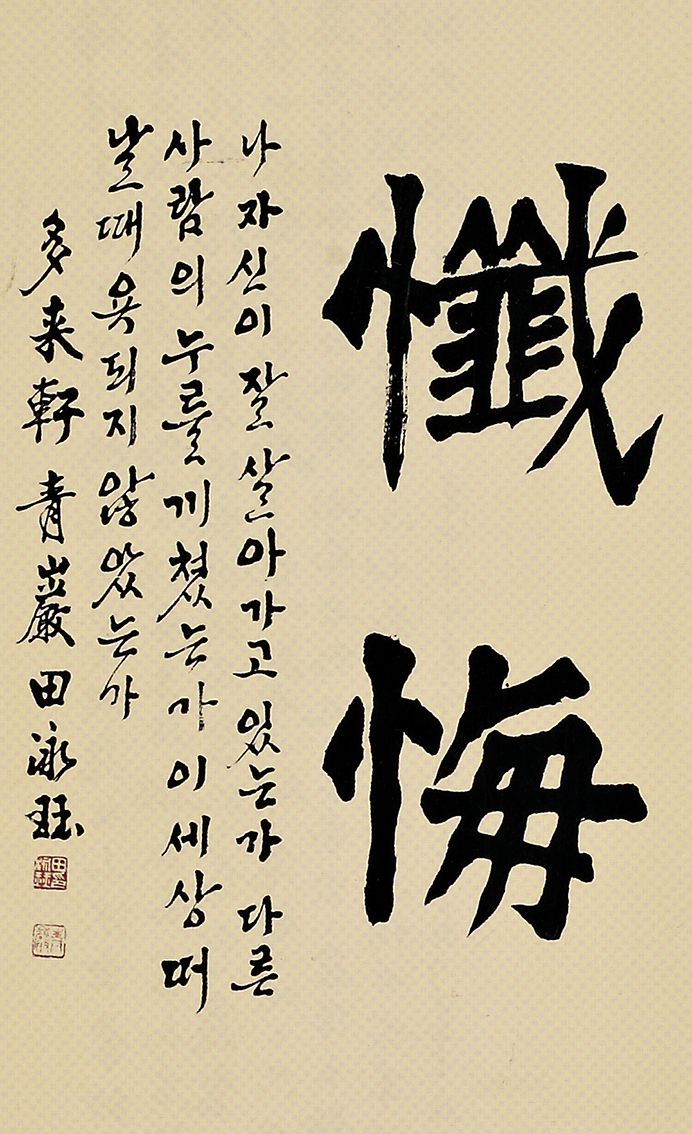 懺悔
나 자신이 잘 살아가고 있는가 다른
사람의 누를 끼쳤는가 이 세상 떠
날 때 욕되지 않았는가
多来軒 青巖 田泳